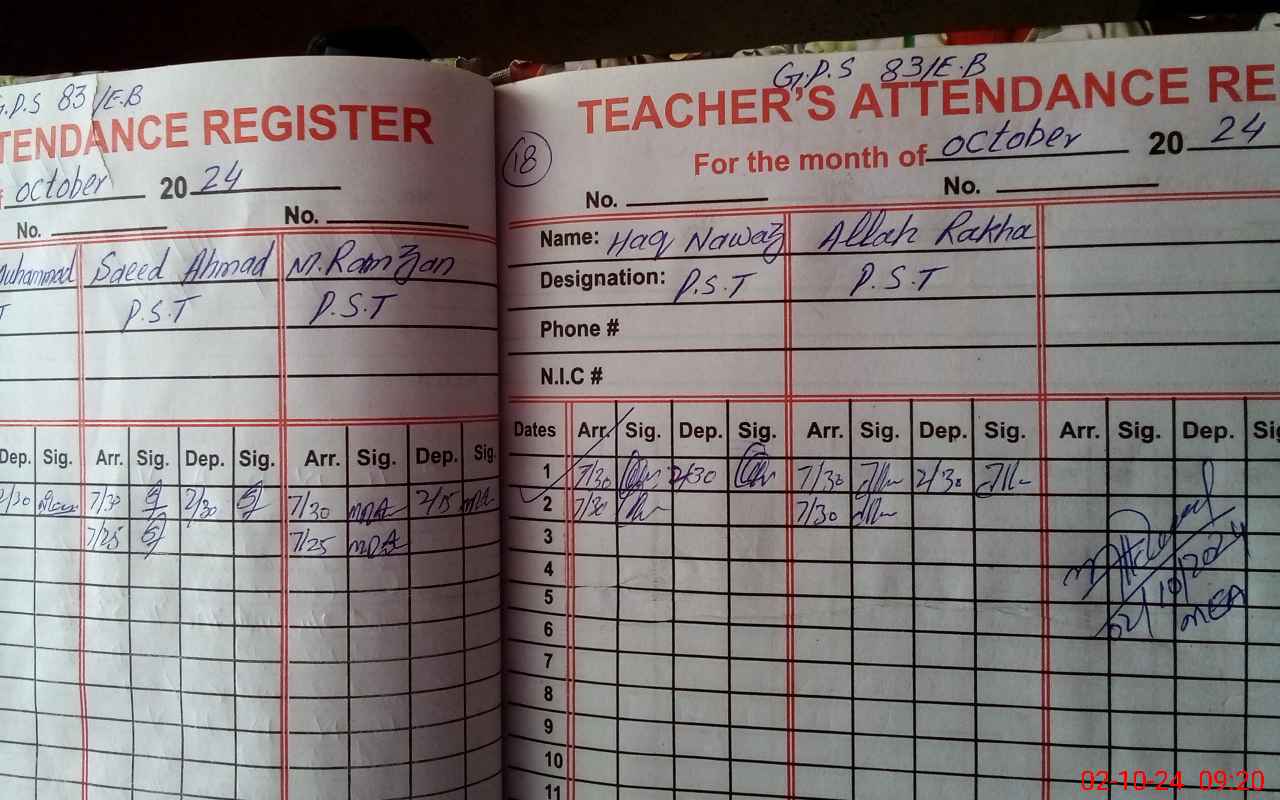 G.P.S 83/E.B
TENDANCE REGISTER
october 20 24
No. No.
Muhammad Saeed Ahmad M.Ramzan
T P.S.T P.S.T
Dep. Sig. Arr. Sig. Dep. Sig. Arr. Sig. Dep. Sig.
2/30 7/30 2/30 7/30 2/15
7/25 7/25
G.P.S 83/E.B
TEACHER'S ATTENDANCE RE
18
For the month of october 20 24
No. No.
Name: Haq Nawaz Allah Rakha
Designation: P.S.T P.S.T
Phone #
N.I.C #
Dates Arr. Sig. Dep. Sig. Arr. Sig. Dep. Sig. Arr. Sig. Dep. Sig
1 7/30 2/30 7/30 2/30
2 7/30 7/30
3
4
5
6
7
8
9
10
11
02/10/2024
MEA
02-10-24 09:20